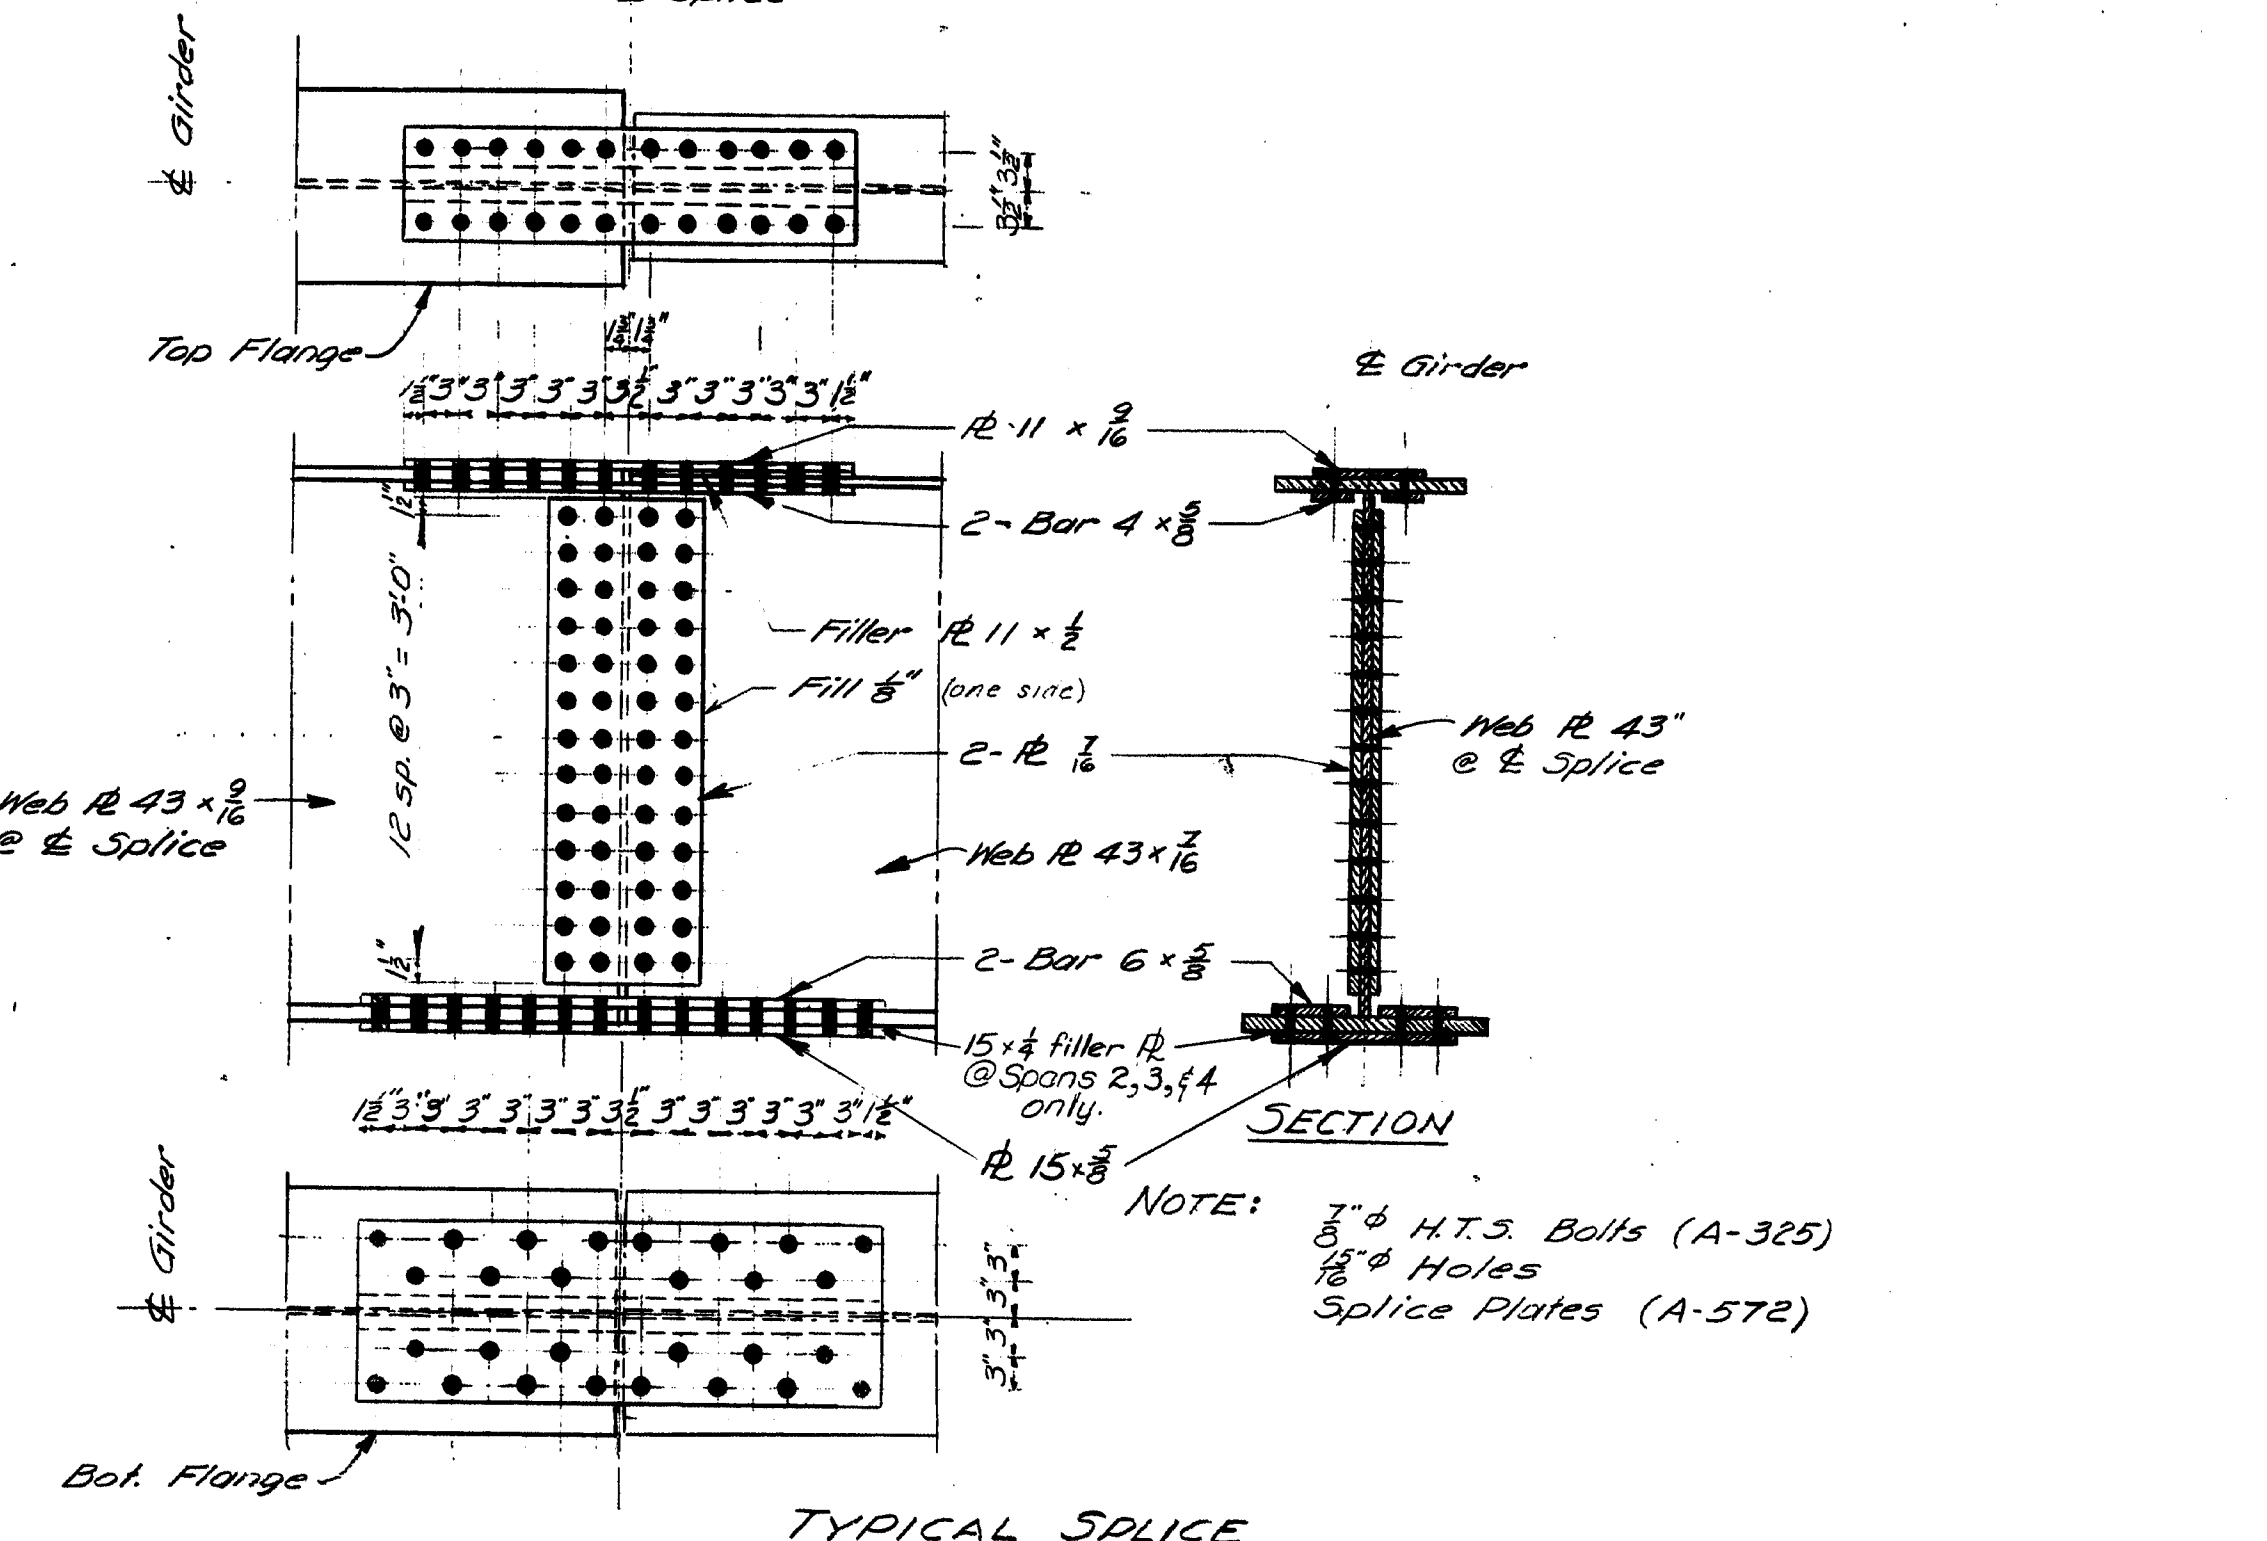 ℄ Splice
℄ Girder
3½" 3½"
Top Flange
1¾" 1¾"
1½" 3" 3" 3" 3" 3" 3½" 3" 3" 3" 3" 3" 1½"
℄ Girder
℞ 11 × 9/16
1½"
2- Bar 4 × 5/8
12 sp. @ 3" = 3'-0"
Filler ℞ 11 × ½
Fill ⅛" (one side)
2- ℞ 7/16
Web ℞ 43"
@ ℄ Splice
Web ℞ 43 × 9/16
@ ℄ Splice
Web ℞ 43 × 7/16
1½"
2- Bar 6 × 5/8
15 × ¼ filler ℞
@ Spans 2, 3, & 4
only.
1½" 3" 3" 3" 3" 3" 3" 3½" 3" 3" 3" 3" 3" 3" 1½"
SECTION
℞ 15 × 5/8
℄ Girder
3" 3" 3" 3"
NOTE:
7/8" φ H.T.S. Bolts (A-325)
15/16" φ Holes
Splice Plates (A-572)
Bot. Flange
TYPICAL SPLICE